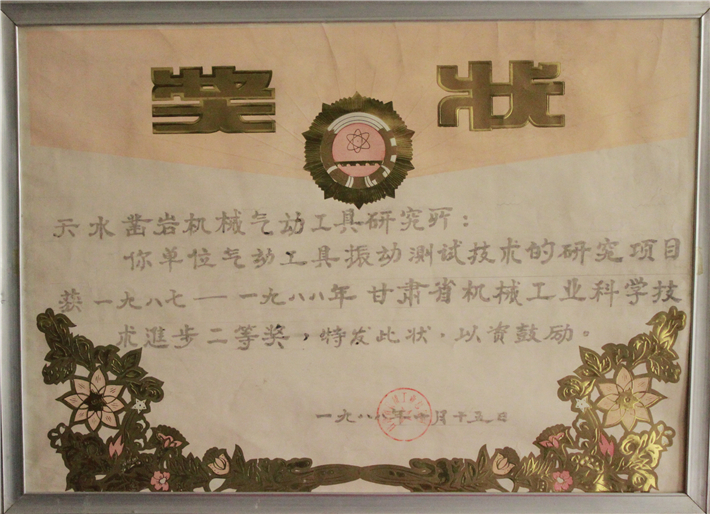 奖状
天水凿岩机械气动工具研究所：
你单位气动工具振动测试技术的研究项目
获一九八七——一九八八年甘肃省机械工业科学技
术進步二等奖，特发此状，以资鼓励。
一九八八年十月十五日